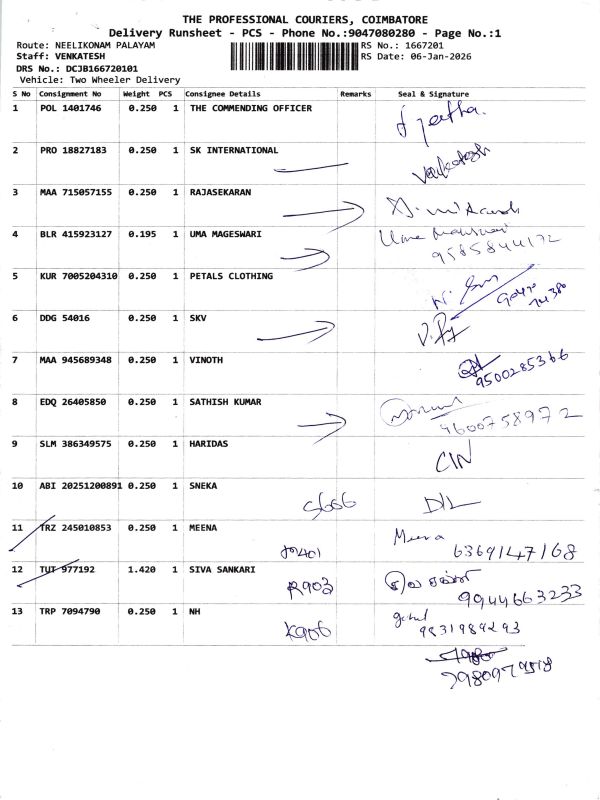 THE PROFESSIONAL COURIERS, COIMBATORE
Delivery Runsheet - PCS - Phone No.:9047080280 - Page No.:1
Route: NEELIKONAM PALAYAM
RS No.: 1667201
Staff: VENKATESH
RS Date: 06-Jan-2026
DRS No.: DCJB166720101
Vehicle: Two Wheeler Delivery
S No Consignment No Weight PCS Consignee Details Remarks Seal & Signature
1 POL 1401746 0.250 1 THE COMMENDING OFFICER
2 PRO 18827183 0.250 1 SK INTERNATIONAL Venkatesh
3 MAA 715057155 0.250 1 RAJASEKARAN
4 BLR 415923127 0.195 1 UMA MAGESWARI Uma Mageswari
9585844172
5 KUR 7005204310 0.250 1 PETALS CLOTHING
6 DDG 54016 0.250 1 SKV
7 MAA 945689348 0.250 1 VINOTH
9500285366
8 EDQ 26405850 0.250 1 SATHISH KUMAR
9600758972
9 SLM 386349575 0.250 1 HARIDAS CIN
10 ABI 20251200891 0.250 1 SNEKA S606 D/L
11 TRZ 245010853 0.250 1 MEENA Meena
6369147168
12 TUT 977192 1.420 1 SIVA SANKARI R903
9944663233
13 TRP 7094790 0.250 1 NH K906
9831989293